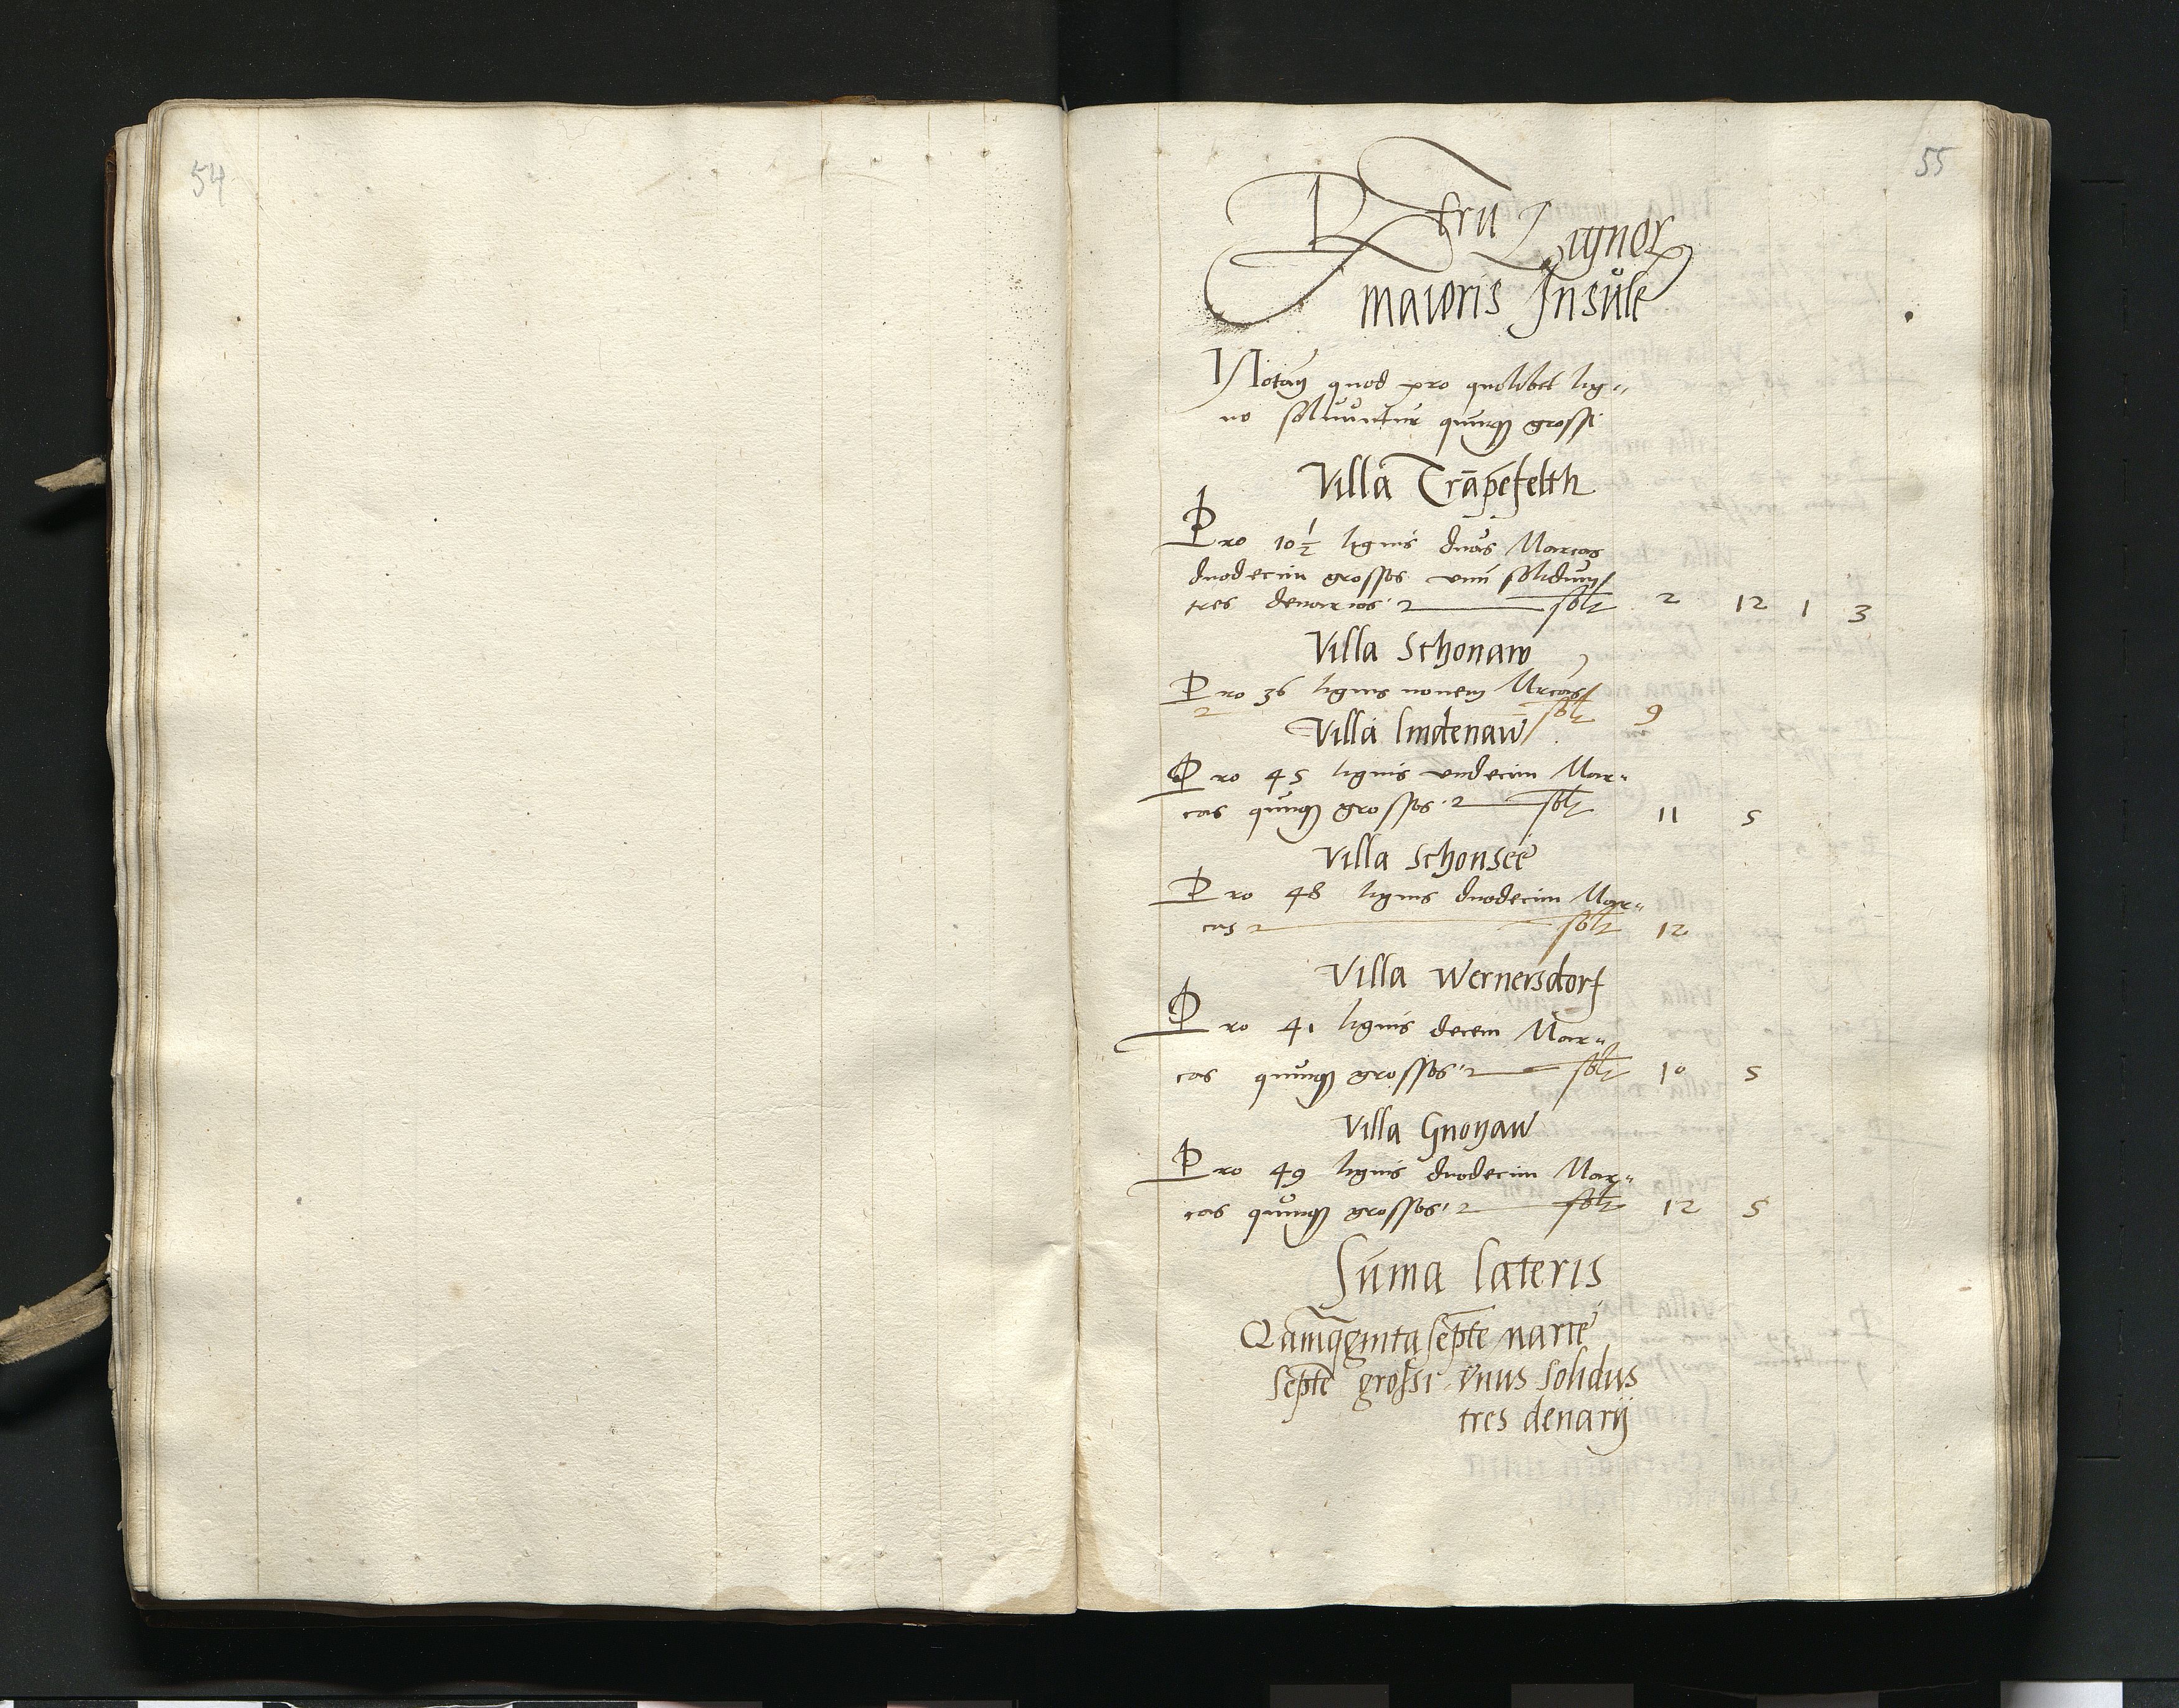 54
55
Lignor
maioris Insule
Notan quod pro quolibet lig〃
no soluuntur quinq grossi
Villa Trapefelth
Pro 10½ lignis duas Marcas
duodecim grossos vnu solidum
tres denarios solt 2 12 1 3
Villa Schonaw
Pro 36 lignis nouem Mrcas
solt 9
Villa lindenaw
Pro 45 lignis vndecim Mar〃
cas quinq grossos solt 11 5
Villa Schonsee
Pro 48 lignis duodecim Mar〃
cas solt 12
Villa Wernersdorf
Pro 41 lignis decem Mar〃
cas quinq grossos solt 10 5
Villa Gnoyaw
Pro 49 lignis duodecim Mar〃
cas quinq grossos solt 12 5
Suma lateris
septe marce
septe grossi vnus solidus
tres denarij